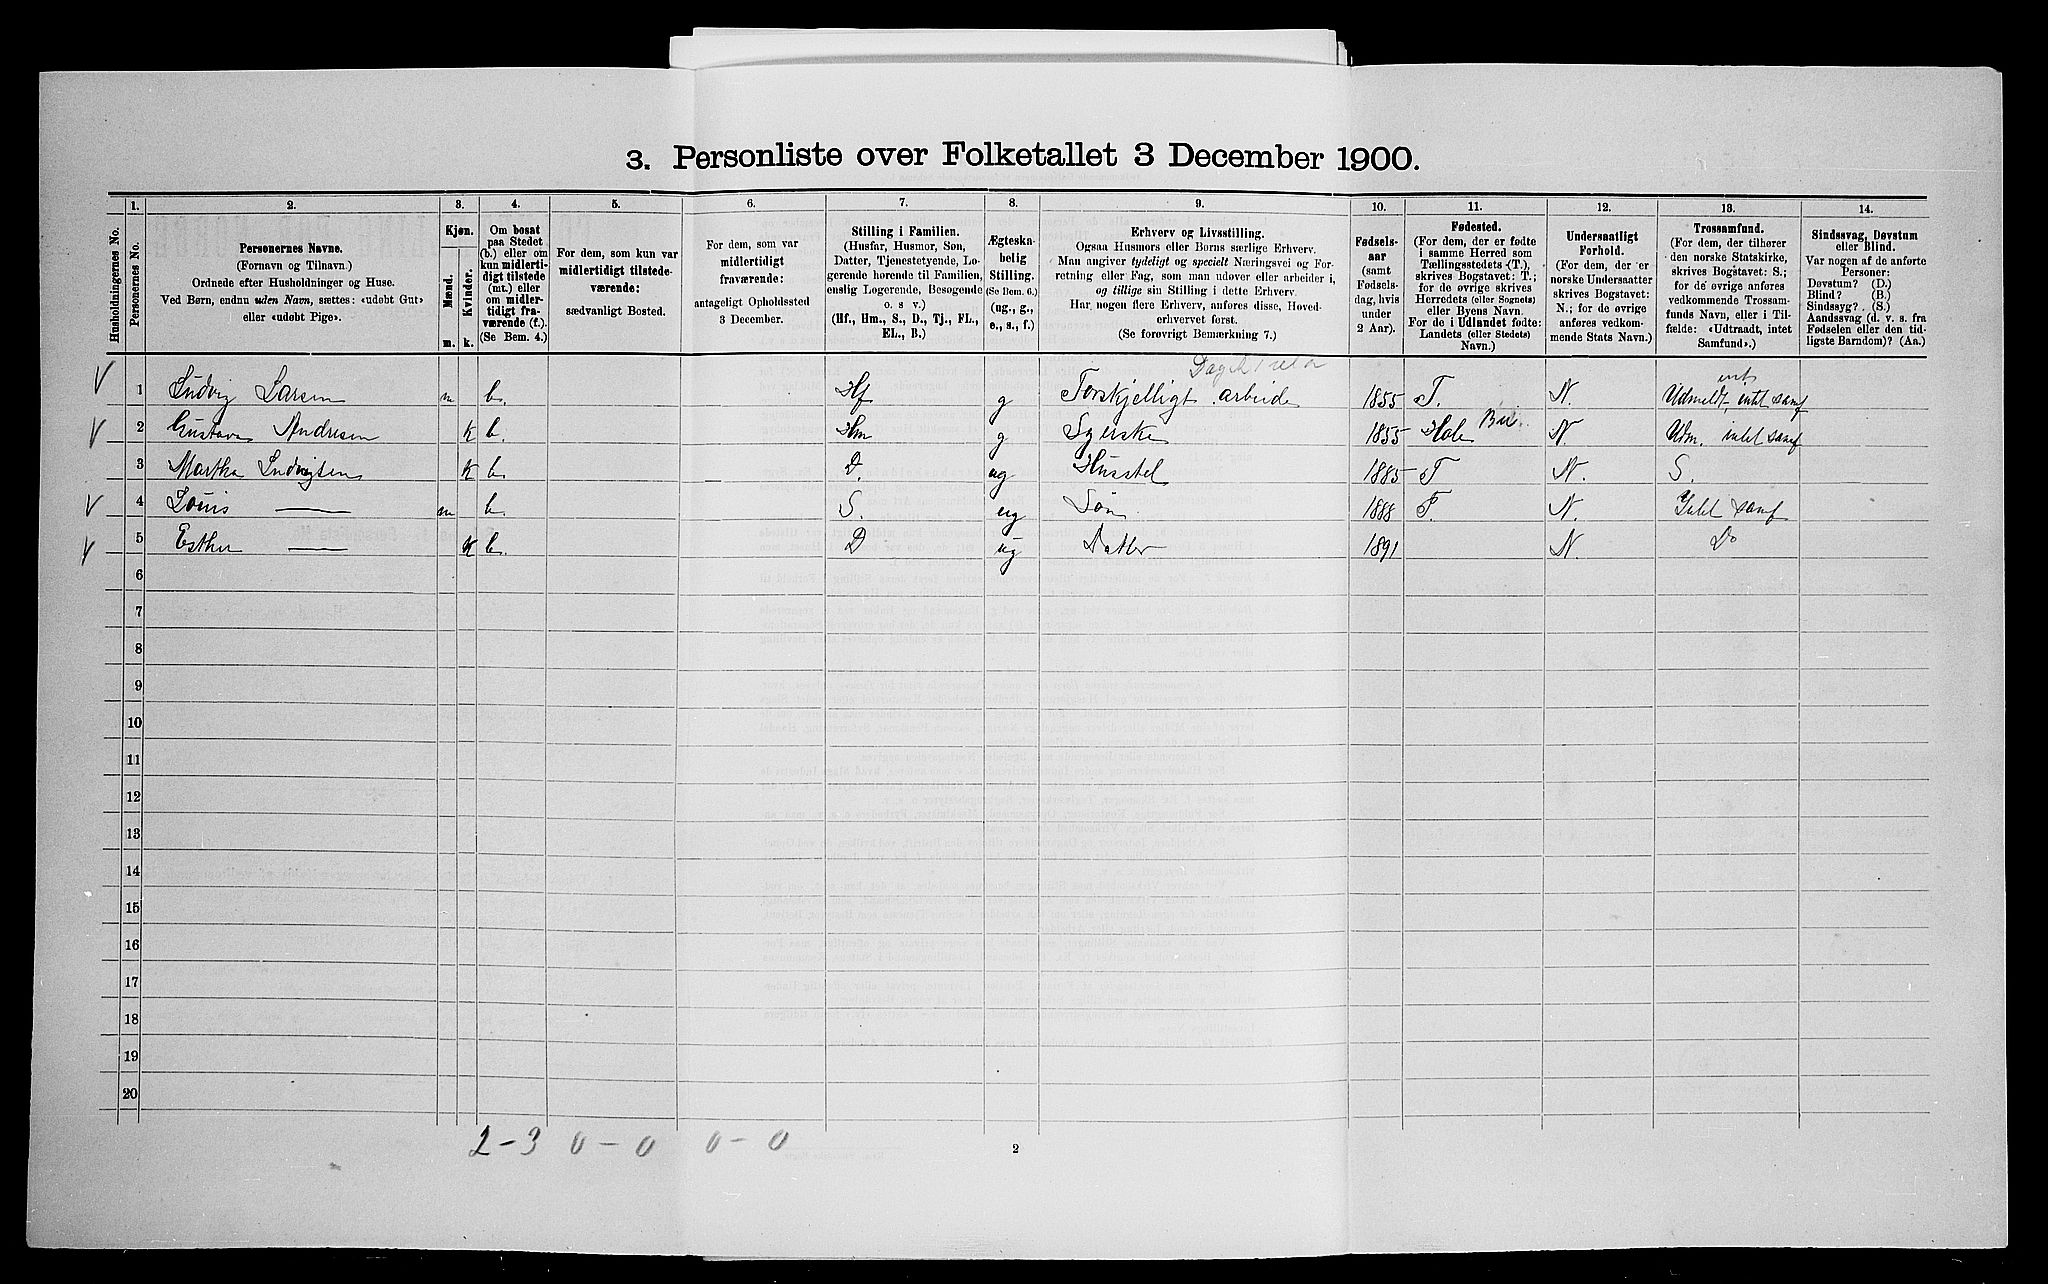 3. Personliste over Folketallet 3 December 1900.
Husholdningernes No.
1.
Personernes No.
2.
Personernes Navne.
(Fornavn og Tilnavn.)
Ordnede efter Husholdninger og Huse.
Ved Børn, endnu uden Navn, sættes: «udøbt Gut»
eller «udøbt Pige».
3.
Kjøn.
Mænd.
Kvinder.
m. k.
4.
Om bosat
paa Stedet
(b.) eller om
kun midlerti-
digt tilstede
(mt.) eller
om midler-
tidigt fra-
værende (f.).
(Se Bem. 4.)
5.
For dem, som kun var
midlertidigt tilstede-
værende:
sædvanligt Bosted.
6.
For dem, som var
midlertidigt
fraværende:
antageligt Opholdssted
3 December.
7.
Stilling i Familien.
(Husfar, Husmor, Søn,
Datter, Tjenestetyende, Lo-
gerende hørende til Familien,
enslig Logerende, Besøgende
o. s v.)
(Hf., Hm., S., D., Tj., FL.,
EL., B.)
8.
Ægteska-
belig
Stilling.
(Se Bem. 6.)
(ug., g.,
e., s., f.)
9.
Erhverv og Livsstilling.
Ogsaa Husmors eller Børns særlige Erhverv.
Man angiver tydeligt og specielt Næringsvei og For-
retning eller Fag, som man udøver eller arbeider i,
og tillige sin Stilling i dette Erhverv.
Har nogen flere Erhverv, anføres disse, Hoved-
erhvervet først.
(Se forøvrigt Bemærkning 7.)
10.
Fødsels-
aar
(samt
Fødsels-
dag, hvis
under
2 Aar).
11.
Fødested.
(For dem, der er fødte
i samme Herred som
Tællingsstedets (T.),
skrives Bogstavet: T.;
for de øvrige skrives
Herredets (eller Sognets)
eller Byens Navn.
For de i Udlandet fødte:
Landets (eller Stedets)
Navn.)
12.
Undersaatligt
Forhold.
(For dem, der er
norske Undersaatter
skrives Bogstavet:
N.; for de øvrige
anføres vedkom-
mende Stats Navn.)
13.
Trossamfund.
(For dem, der tilhører
den norske Statskirke,
skrives Bogstavet: S.;
for de øvrige anføres
vedkommende Trossam-
funds Navn, eller i Til-
fælde: «Udtraadt, intet
Samfund».)
14.
Sindssvag, Døvstum
eller Blind.
Var nogen af de anførte
Personer:
Døvstum? (D.)
Blind? (B.)
Sindssyg? . (S.)
Aandssvag (d. v. s. fra
Fødselen eller den tid-
ligste Barndom)? (Aa.)
1 Ludvig Larsen m b. Hf g Forskjelligt arbeide 1855 T. N. Udmeldt, intet samf
2 Gustava Andresen K b. Hm g Syerske 1855 Hole N. Udm. intet samf
3 Martha Ludvigsen K b. D. ug Husstel 1885 T N. S.
4 Louis — m b. S. ug Søn 1888 T. N. Intet samf
5 Esther — K b. D ug Datter 1891 N. Do
6
7
8
9
10
11
12
13
14
15
16
17
18
19
20
2-3 0-0 0-0
2